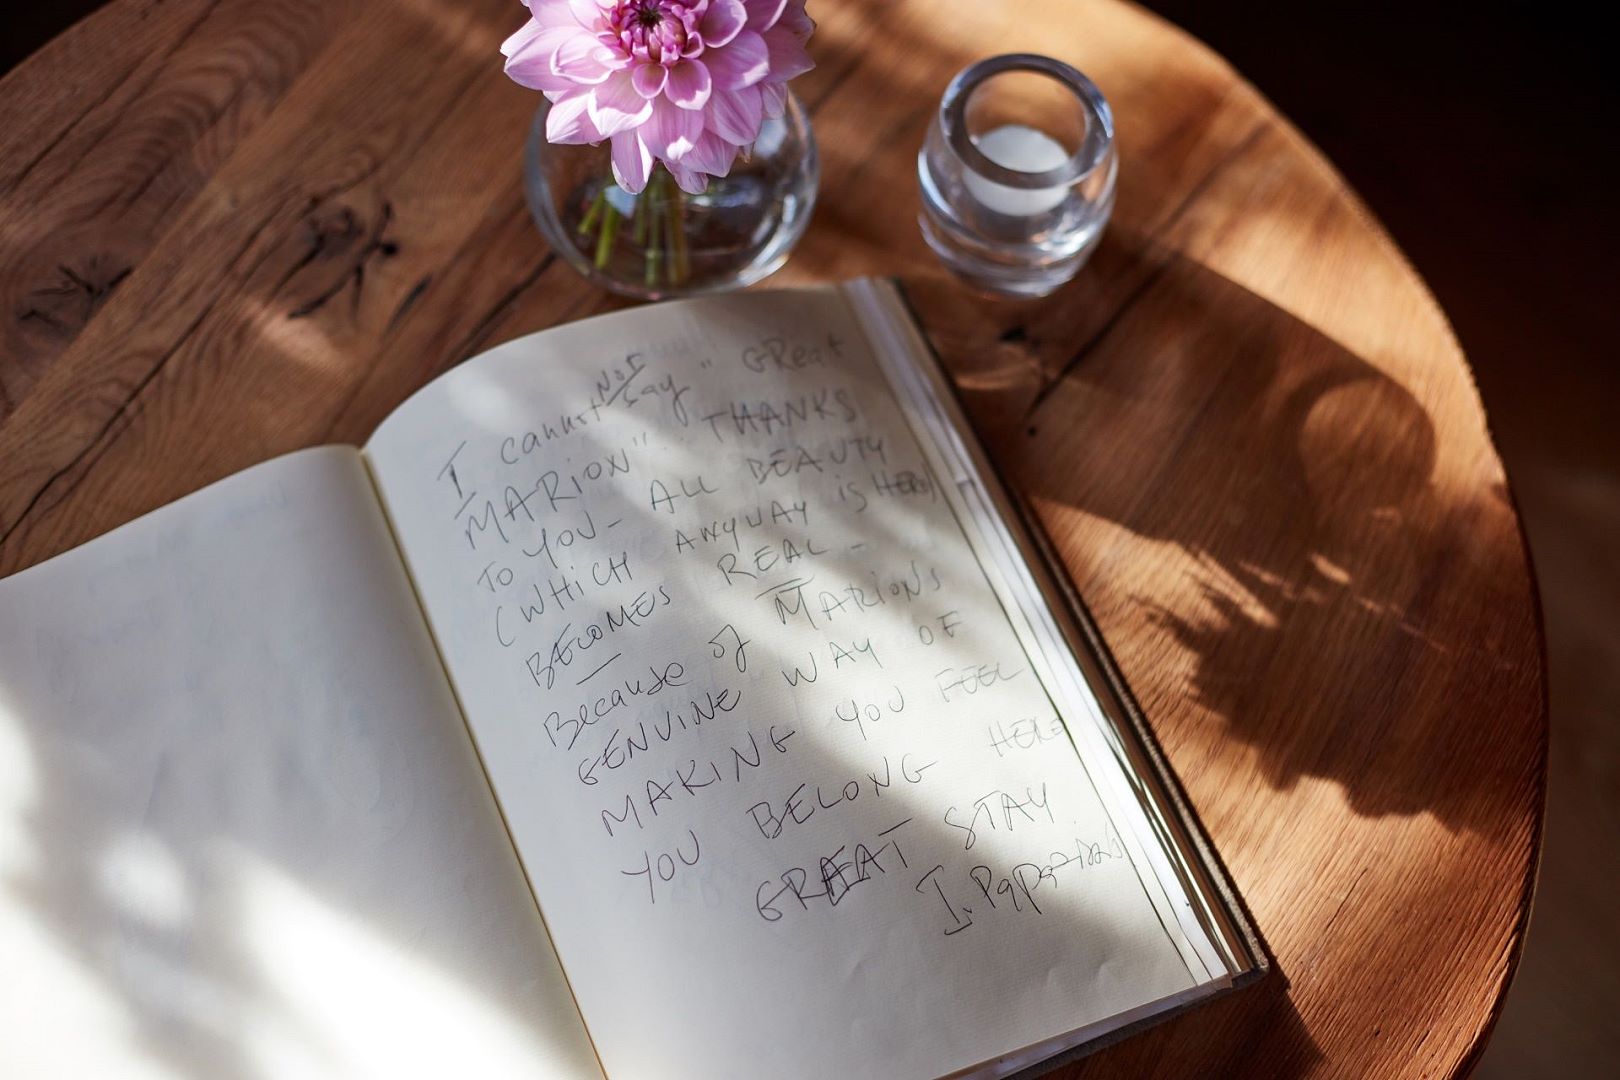 I cannot NOT say "GReat
MARION". THANKS
TO YOU- ALL BEAUTY
(WHICH ANYWAY is HERE)
BECOMES REAL -
Because of MARIONS
GENUINE WAY OF
MAKING YOU FEEL
YOU BELONG HERE
GREAT STAY.
I.